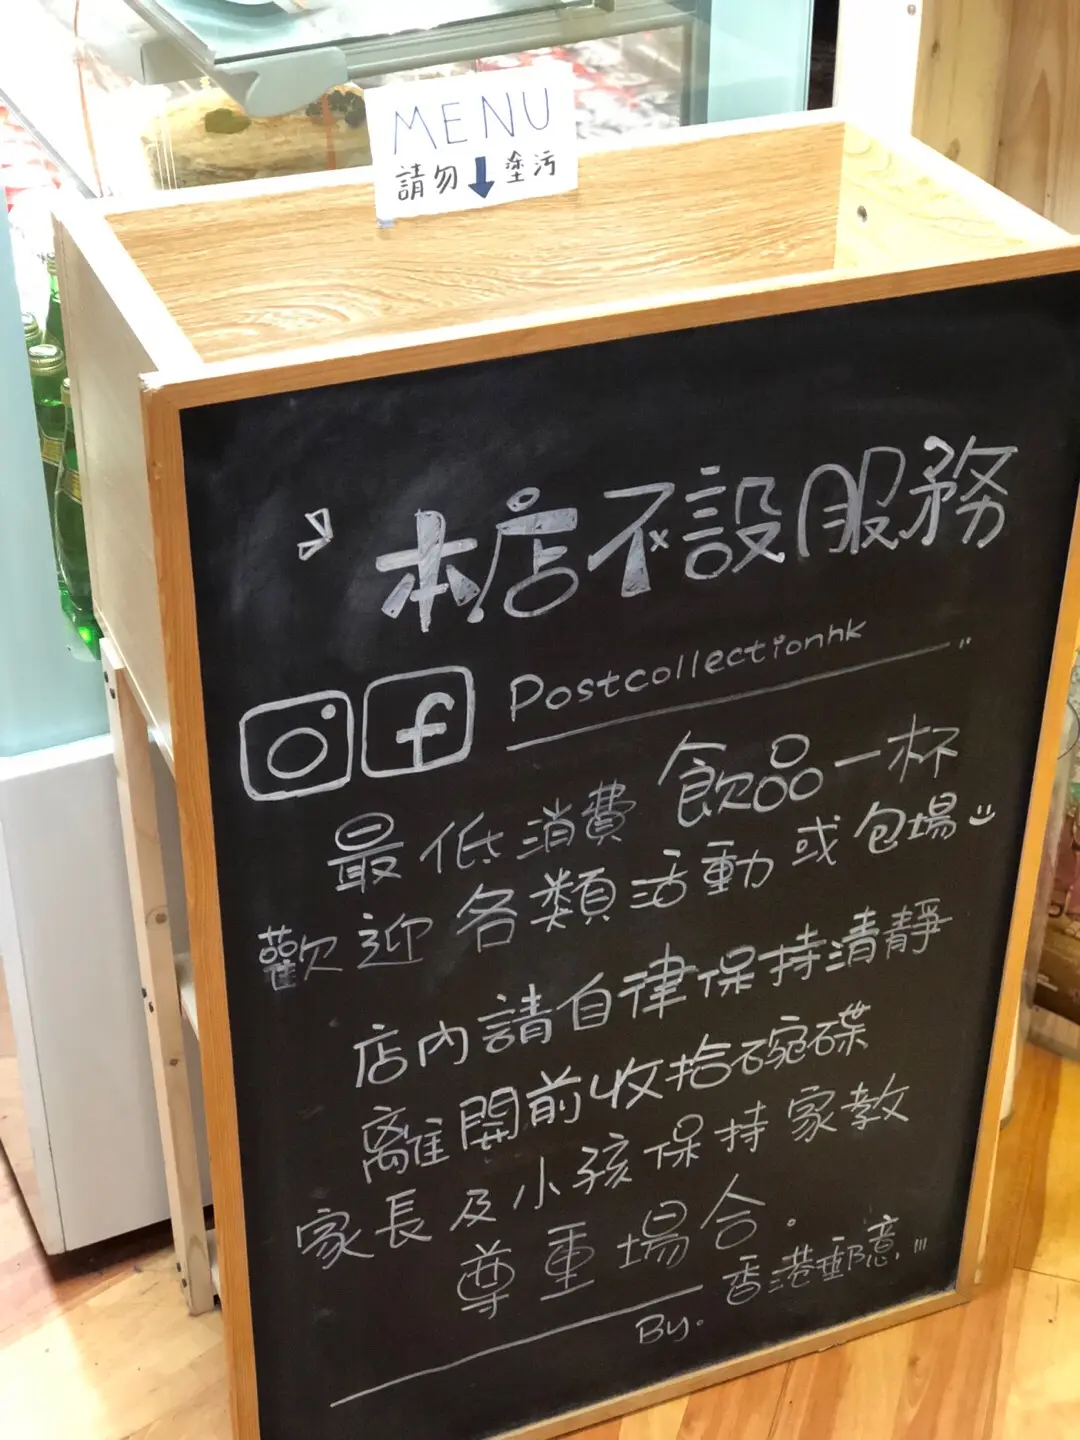 MENU
請勿塗污
本店不設服務
Postcollectionhk
最低消費 飲品一杯
歡迎各類活動或包場
店內請自律保持清靜
離開前收拾碗碟
家長及小孩保持家教
尊重場合。
By. 香港郵意